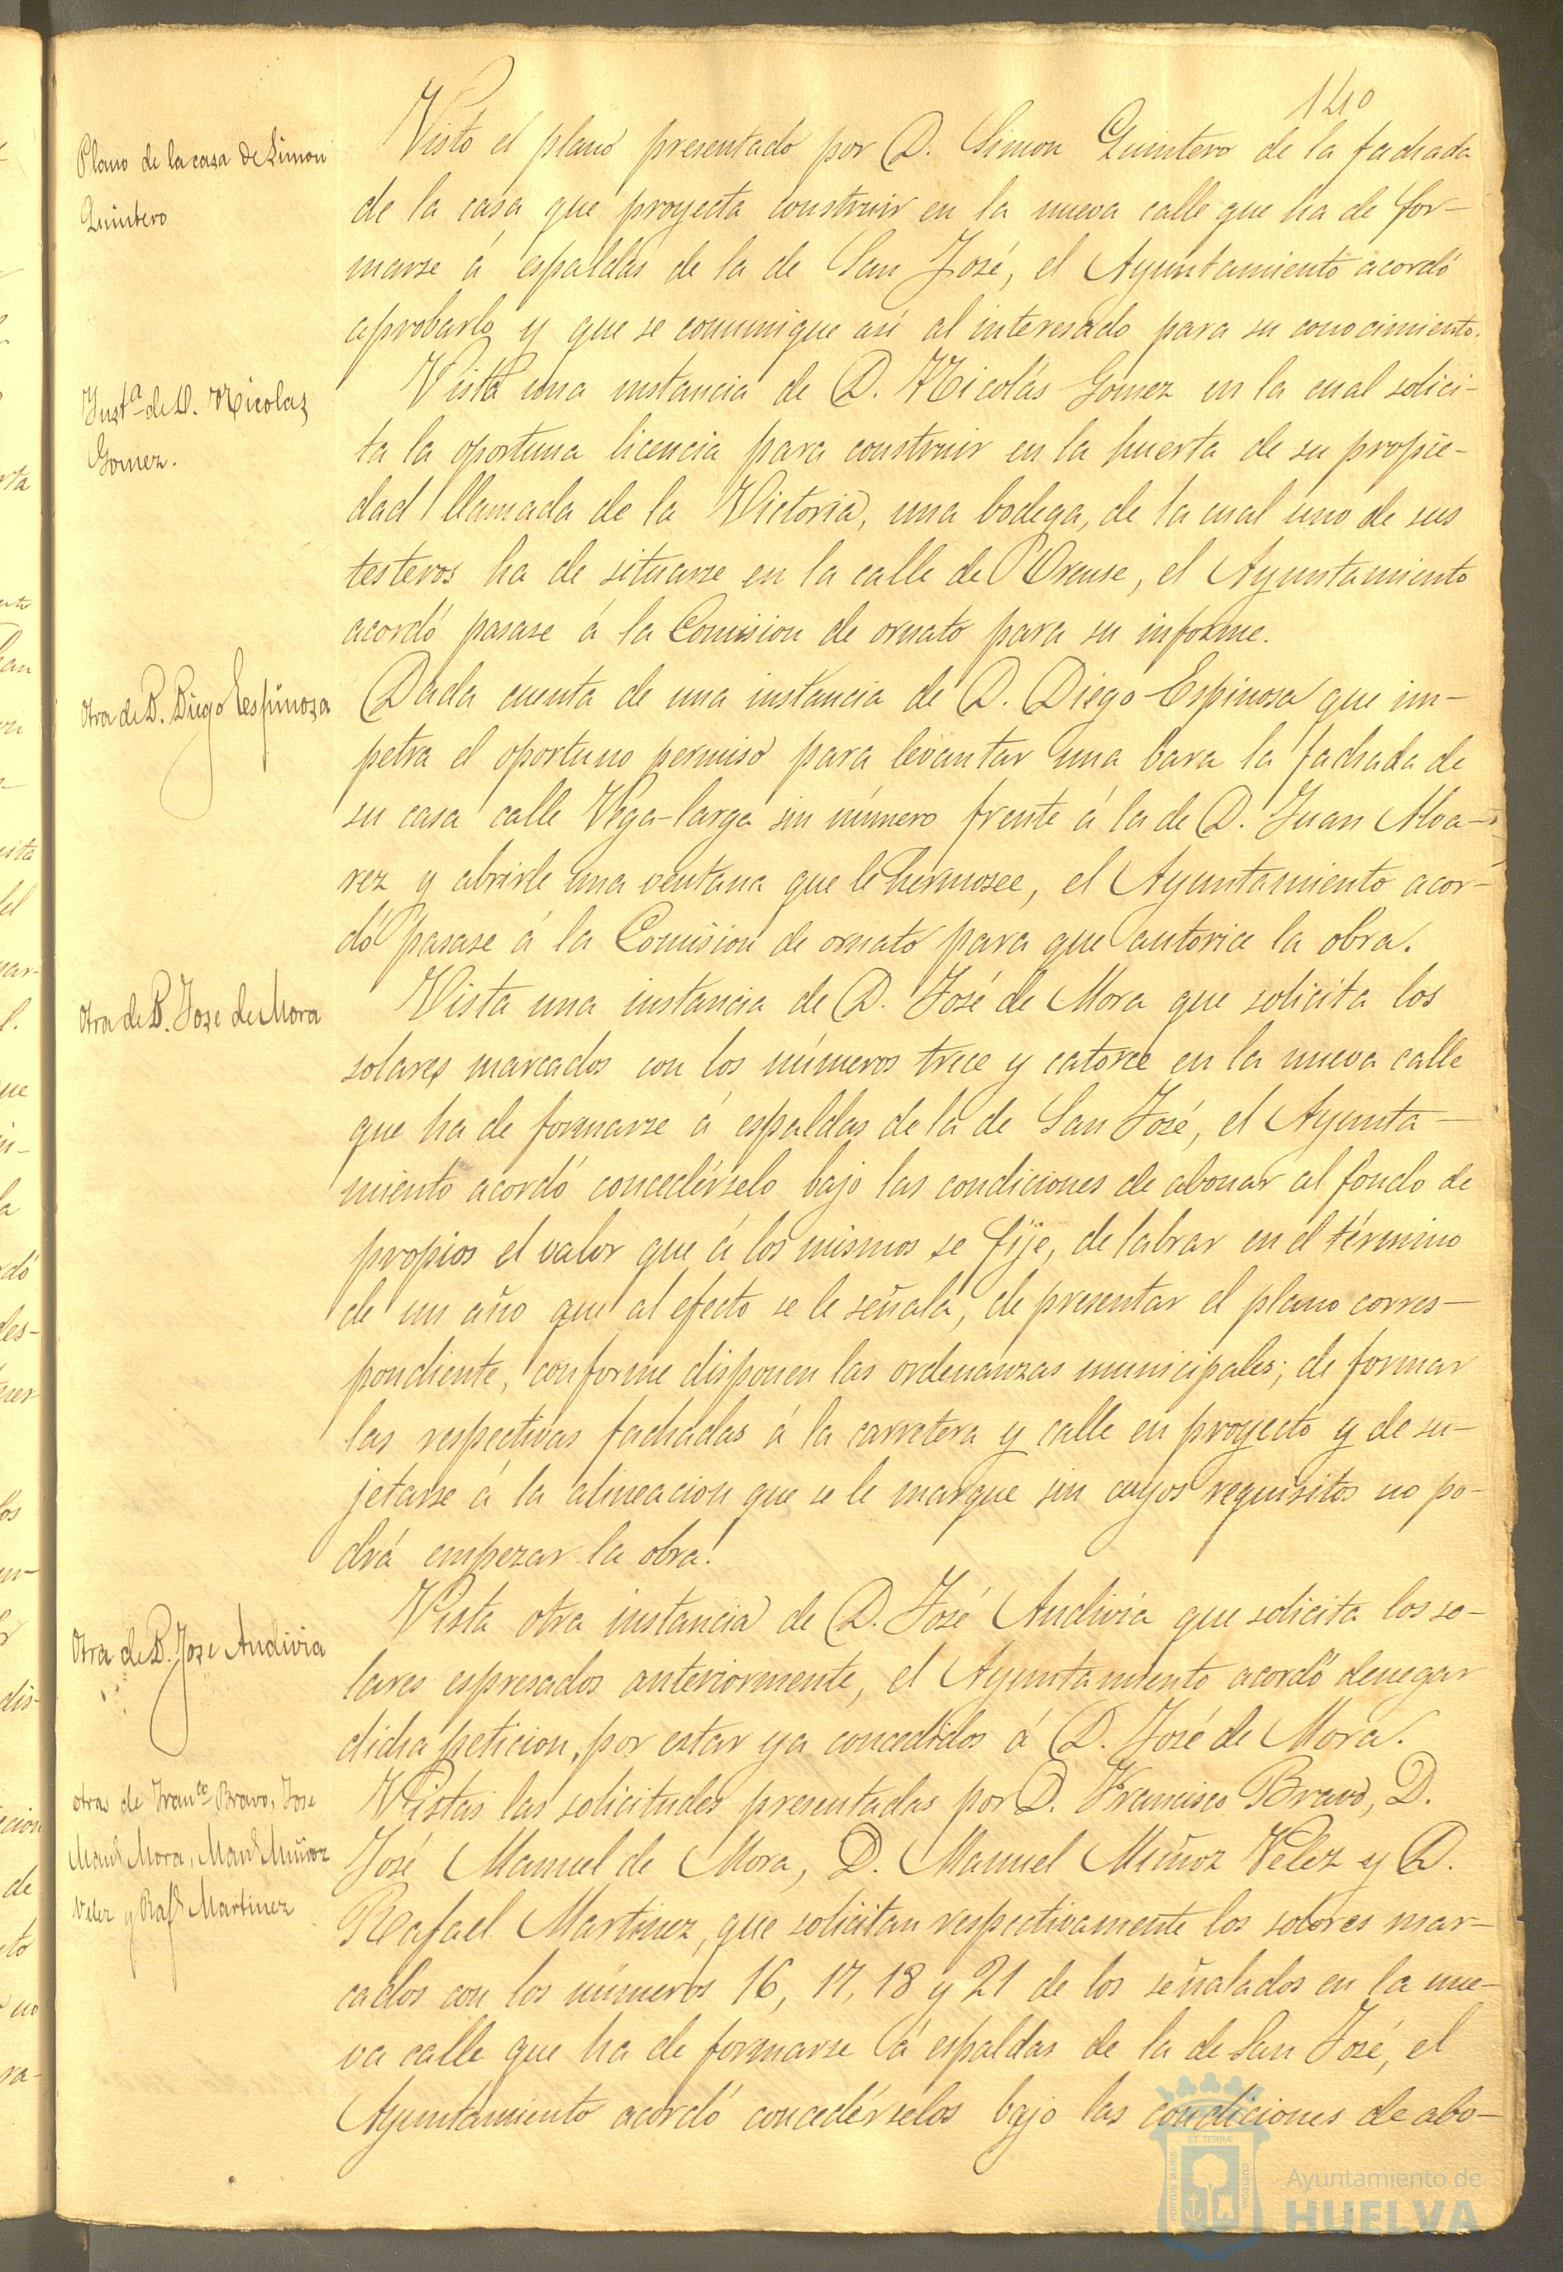 140
Plano de la casa de Simon
Quintero
Visto el plano presentado por D. Simon Quintero de la fachada
de la casa que proyecta construir en la nueva calle que ha de for-
marse á espaldas de la de San José, el Ayuntamiento acordó
aprobarlo y que se comunique asi al interesado para su conocimiento.
Instª de D. Nicolas
Gomez.
Vista una instancia de D. Nicolás Gomez en la cual solici-
ta la oportuna licencia para construir en la huerta de su propie-
dad llamada de la Victoria, una bodega, de la cual uno de sus
testeros ha de situarse en la calle de Orense, el Ayuntamiento
acordó pasase á la Comision de ornato para su informe.
Otra de D. Diego Espinosa
Dada cuenta de una instancia de D. Diego Espinosa que im-
petra el oportuno permiso para levantar una bara la fachada de
su casa calle Vega-larga sin número frente á la de D. Juan Alva-
rez y abrirle una ventana que le hermosee, el Ayuntamiento acor-
dó pasase á la Comision de ornato para que autorice la obra.
Otra de D. Jose de Mora
Vista una instancia de D. José de Mora que solicita los
solares marcados con los números trece y catorce en la nueva calle
que ha de formarse á espaldas de la de San José, el Ayunta-
miento acordó concedérselo bajo las condiciones de abonar al fondo de
propios el valor que á los mismos se fije, de labrar en el término
de un año que al efecto se le señala, de presentar el plano corres-
pondiente, conforme disponen las ordenanzas municipales; de formar
las respectivas fachadas á la carretera y calle en proyecto y de su-
jetarse á la alineacion que se le marque sin cuyos requisitos no po-
drá empezar la obra.
Otra de D. Jose Andivia
Vista otra instancia de D. José Andivia que solicita los so-
lares espresados anteriormente, el Ayuntamiento acordó denegar
dicha peticion, por estar ya concedidos á D. José de Mora.
otras de Franco Bravo, Jose
Manl Mora, Manl Muñoz
Velez y Rafl Martinez
Vistas las solicitudes presentadas por D. Francisco Bravo, D.
José Manuel de Mora, D. Manuel Muñoz Velez y D.
Rafael Martinez, que solicitan respectivamente los solores mar-
cados con los números 16, 17, 18 y 21 de los señalados en la nue-
va calle que ha de formarse á espaldas de la de San José, el
Ayuntamiento acordó concedérselos bajo las condiciones de abo-
Ayuntamiento de
HUELVA